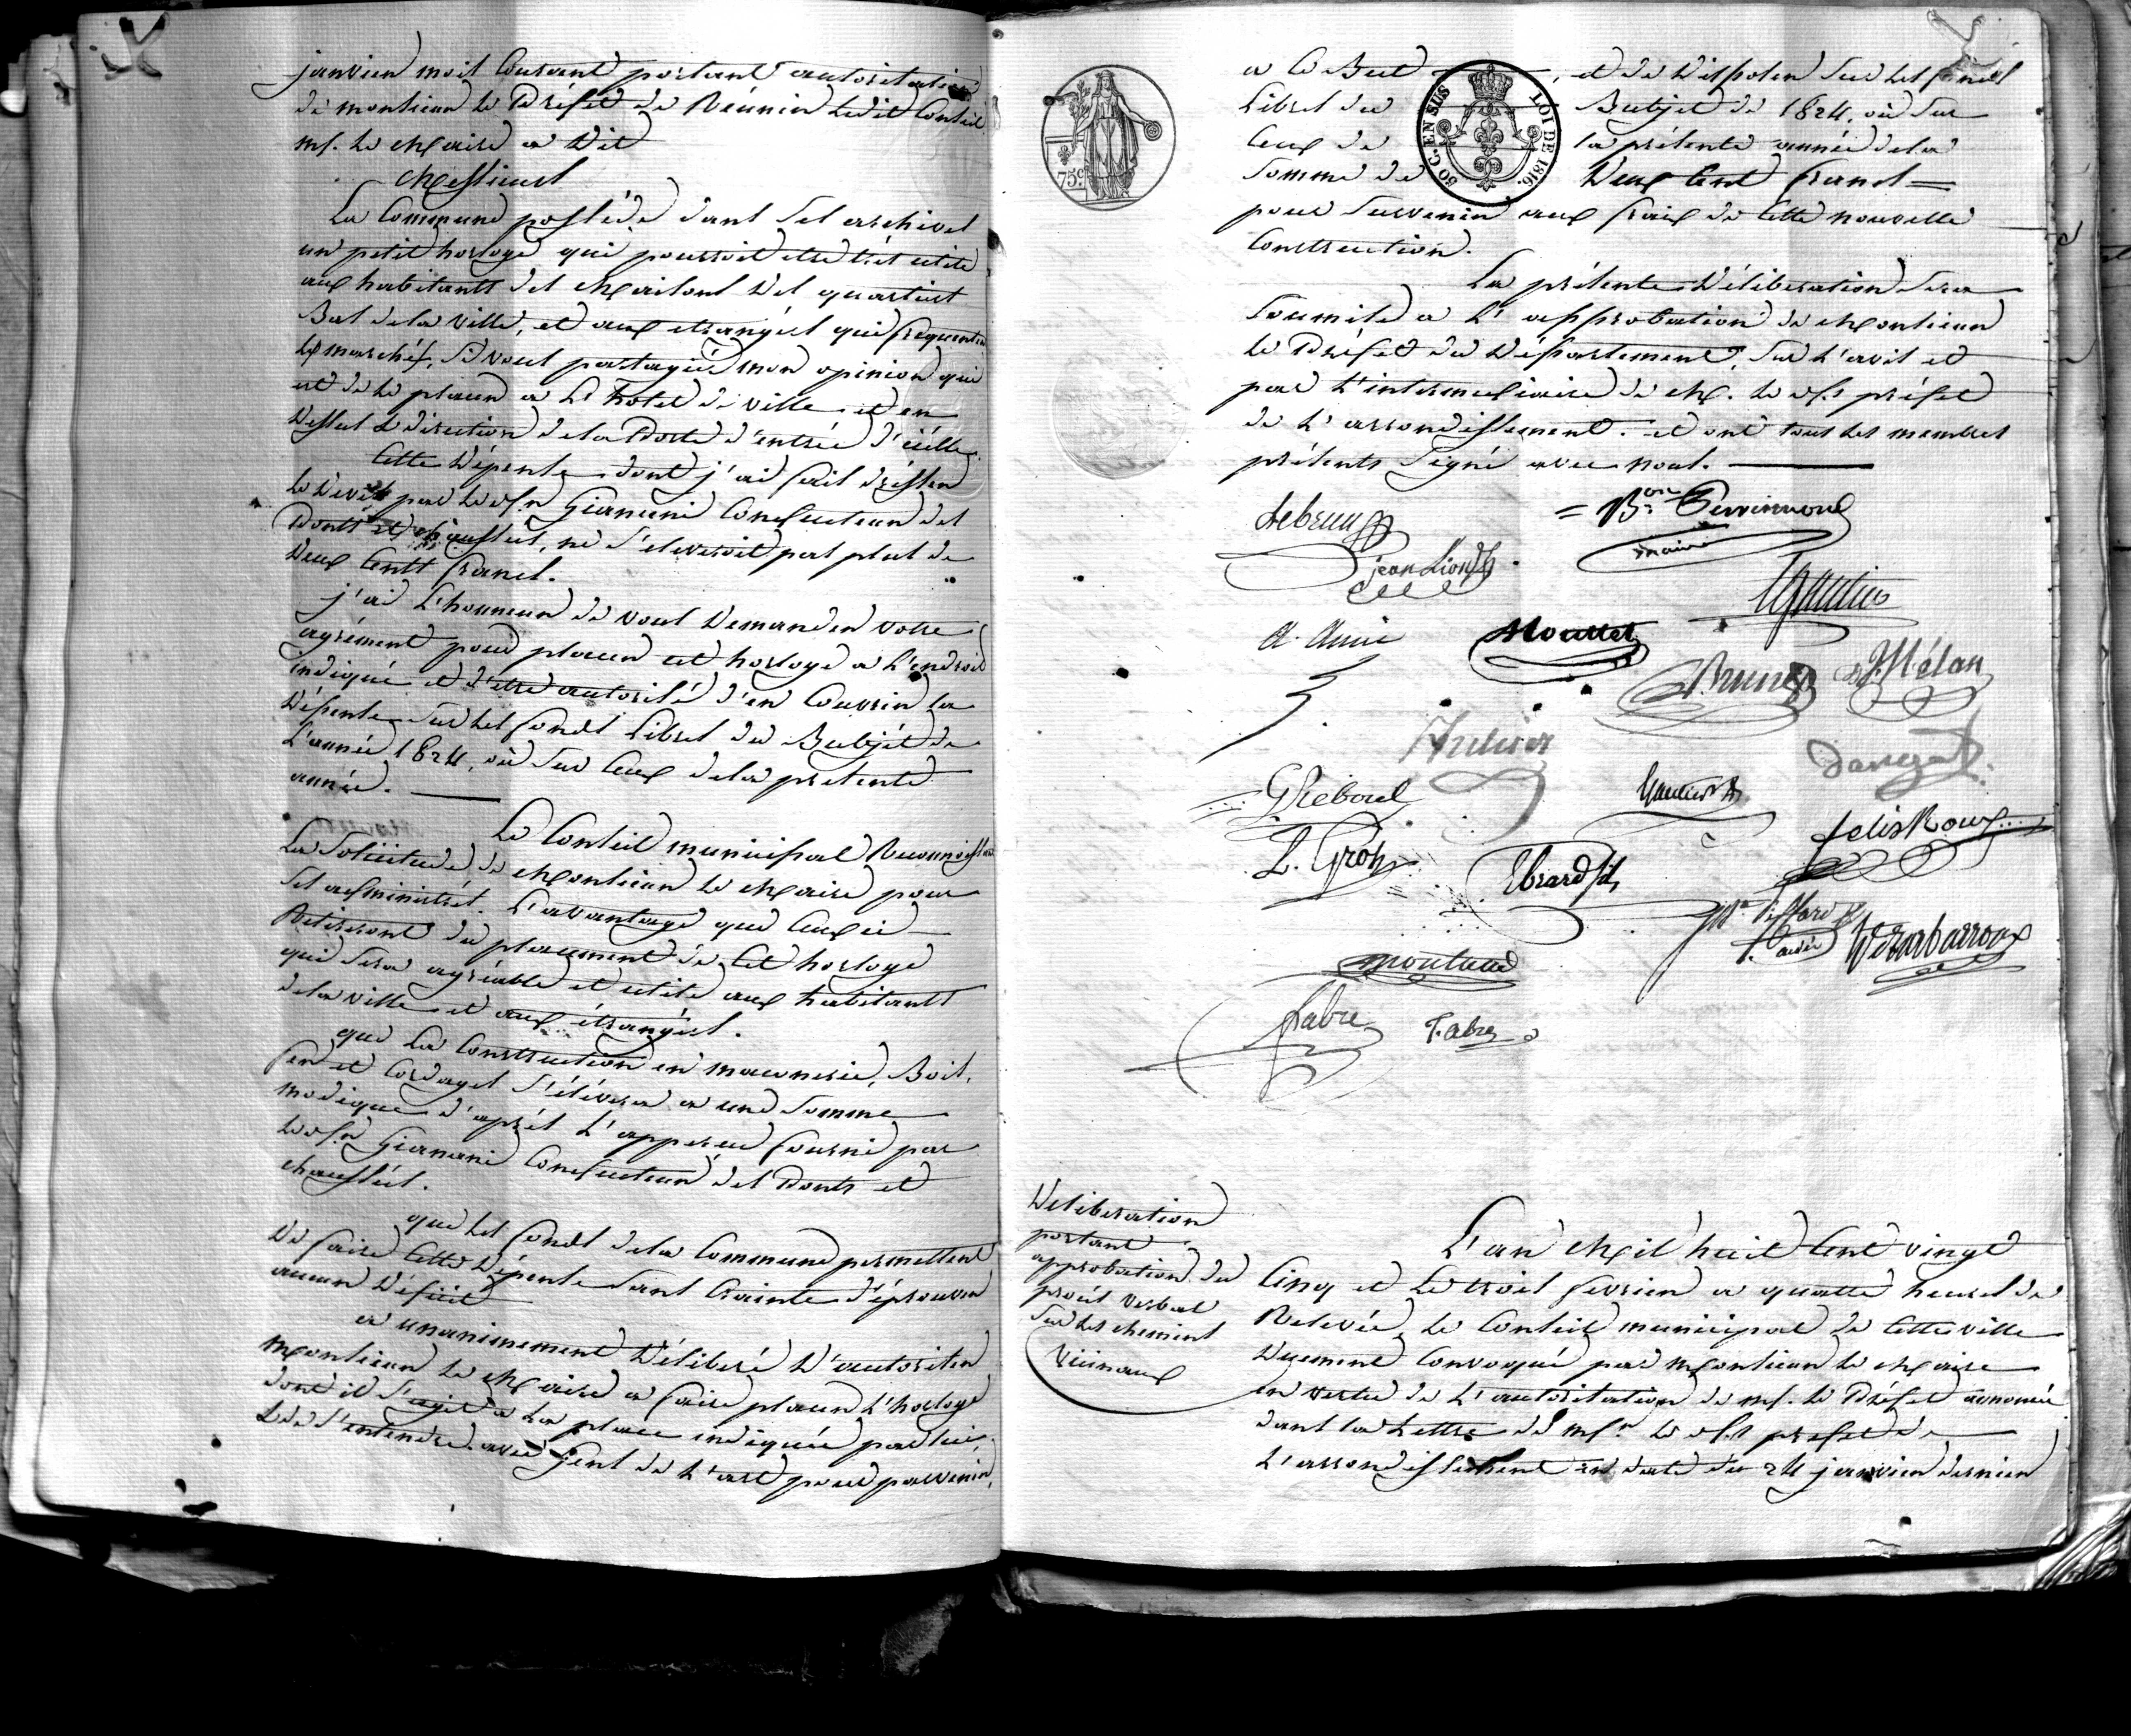 janvier mois Courant portant autorisation
de monsieur le Préfet de Réunir ledit Conseil
mr. le Maire a Dit
Messieurs
La Commune possède dans ses archives
un petit horloge qui pourroit etre très utile
aux habitants des Maisons des quartiers
Bas de la ville, et aux etrangers qui frequentent
les marchés, si vous partagiés mon opinion qui
est de le placer a L'hotel de ville et en
dessus de la Porte d'entrée d'icelle.
Cette Dépense dont j'ai fait drésser
le Devis par le Sr. Gianani Conducteur des
Ponts et chaussées, ne s'eleveroit pas plus de
Deux Cents francs.
j'ai L'honneur de vous Demander votre
agrément pour placer cet horloge a L'endroit
indiqué et d'etre autorisé d'en Couvrir la
Dépense sur les fonds Libres du Budjét de
L'année 1824, où sur Ceux de la presente
année.
Le Conseil municipal Reconnoissant
La Sollicitude de Monsieur le Maire pour
ses administrés. L'avantage que Ceux ci
Retireront du placement de Cet horloge
qui sera agréable et utile aux habitants
de la ville et aux étrangers.
que La Construction en maconerie, Bois,
fer et Cordages s'élévera a une somme
modique d'après L'apperçu fourni par
le Sr. Gianani Conducteur des Ponts et
chaussées.
que les fonds de la Commune permettent
de faire Cette Dépense sans Crainte d'éprouver
aucun Déficit
a unanimement Déliberé D'autoriser
Monsieur le Maire a faire placer L'horloge
dont il s'agit a La place indiquée par lui,
de s'entendre avec Gens de L'art pour parvenir
75c
a Ce But, et de Disposer sur les fonds
Libres du Budjet de 1824, où sur
Ceux de la présente année de la
Somme de Deux Cent francs
50 C. EN SUS LOI DE 1816.
pour survenir aux fraix de Cette nouvelle
Construction.
La présente Déliberation sera
soumise a L'approbation de Monsieur
le Préfet du Département, sur L'avis et
par L'intermediaire de M. le Sous préfet
de L'arrondissement. et ont tous les membres
présents signé avec nous.
Lebrun
Bon
maire
jean Lions
Mouttet
Brun
J. Mélan
G Reboul
Gautier
felix Roux
L. Gros
Ebrard fils
montaud
Fabre
Fabre
Deliberation
portant
approbation du
procès verbal
sur les chemins
Vicinaux
L'an Mil huit Cent vingt
Cinq et Le trois fevrier a quatre heures de
Relevée, le Conseil municipal de Cette ville
Duement Convoqué par Monsieur le Maire
en vertu de L'autorisation de mr. le Préfet annoncée
dans la Lettre de Mr. le Sous prefet de
L'arrondissement en date du 24 janvier dernier